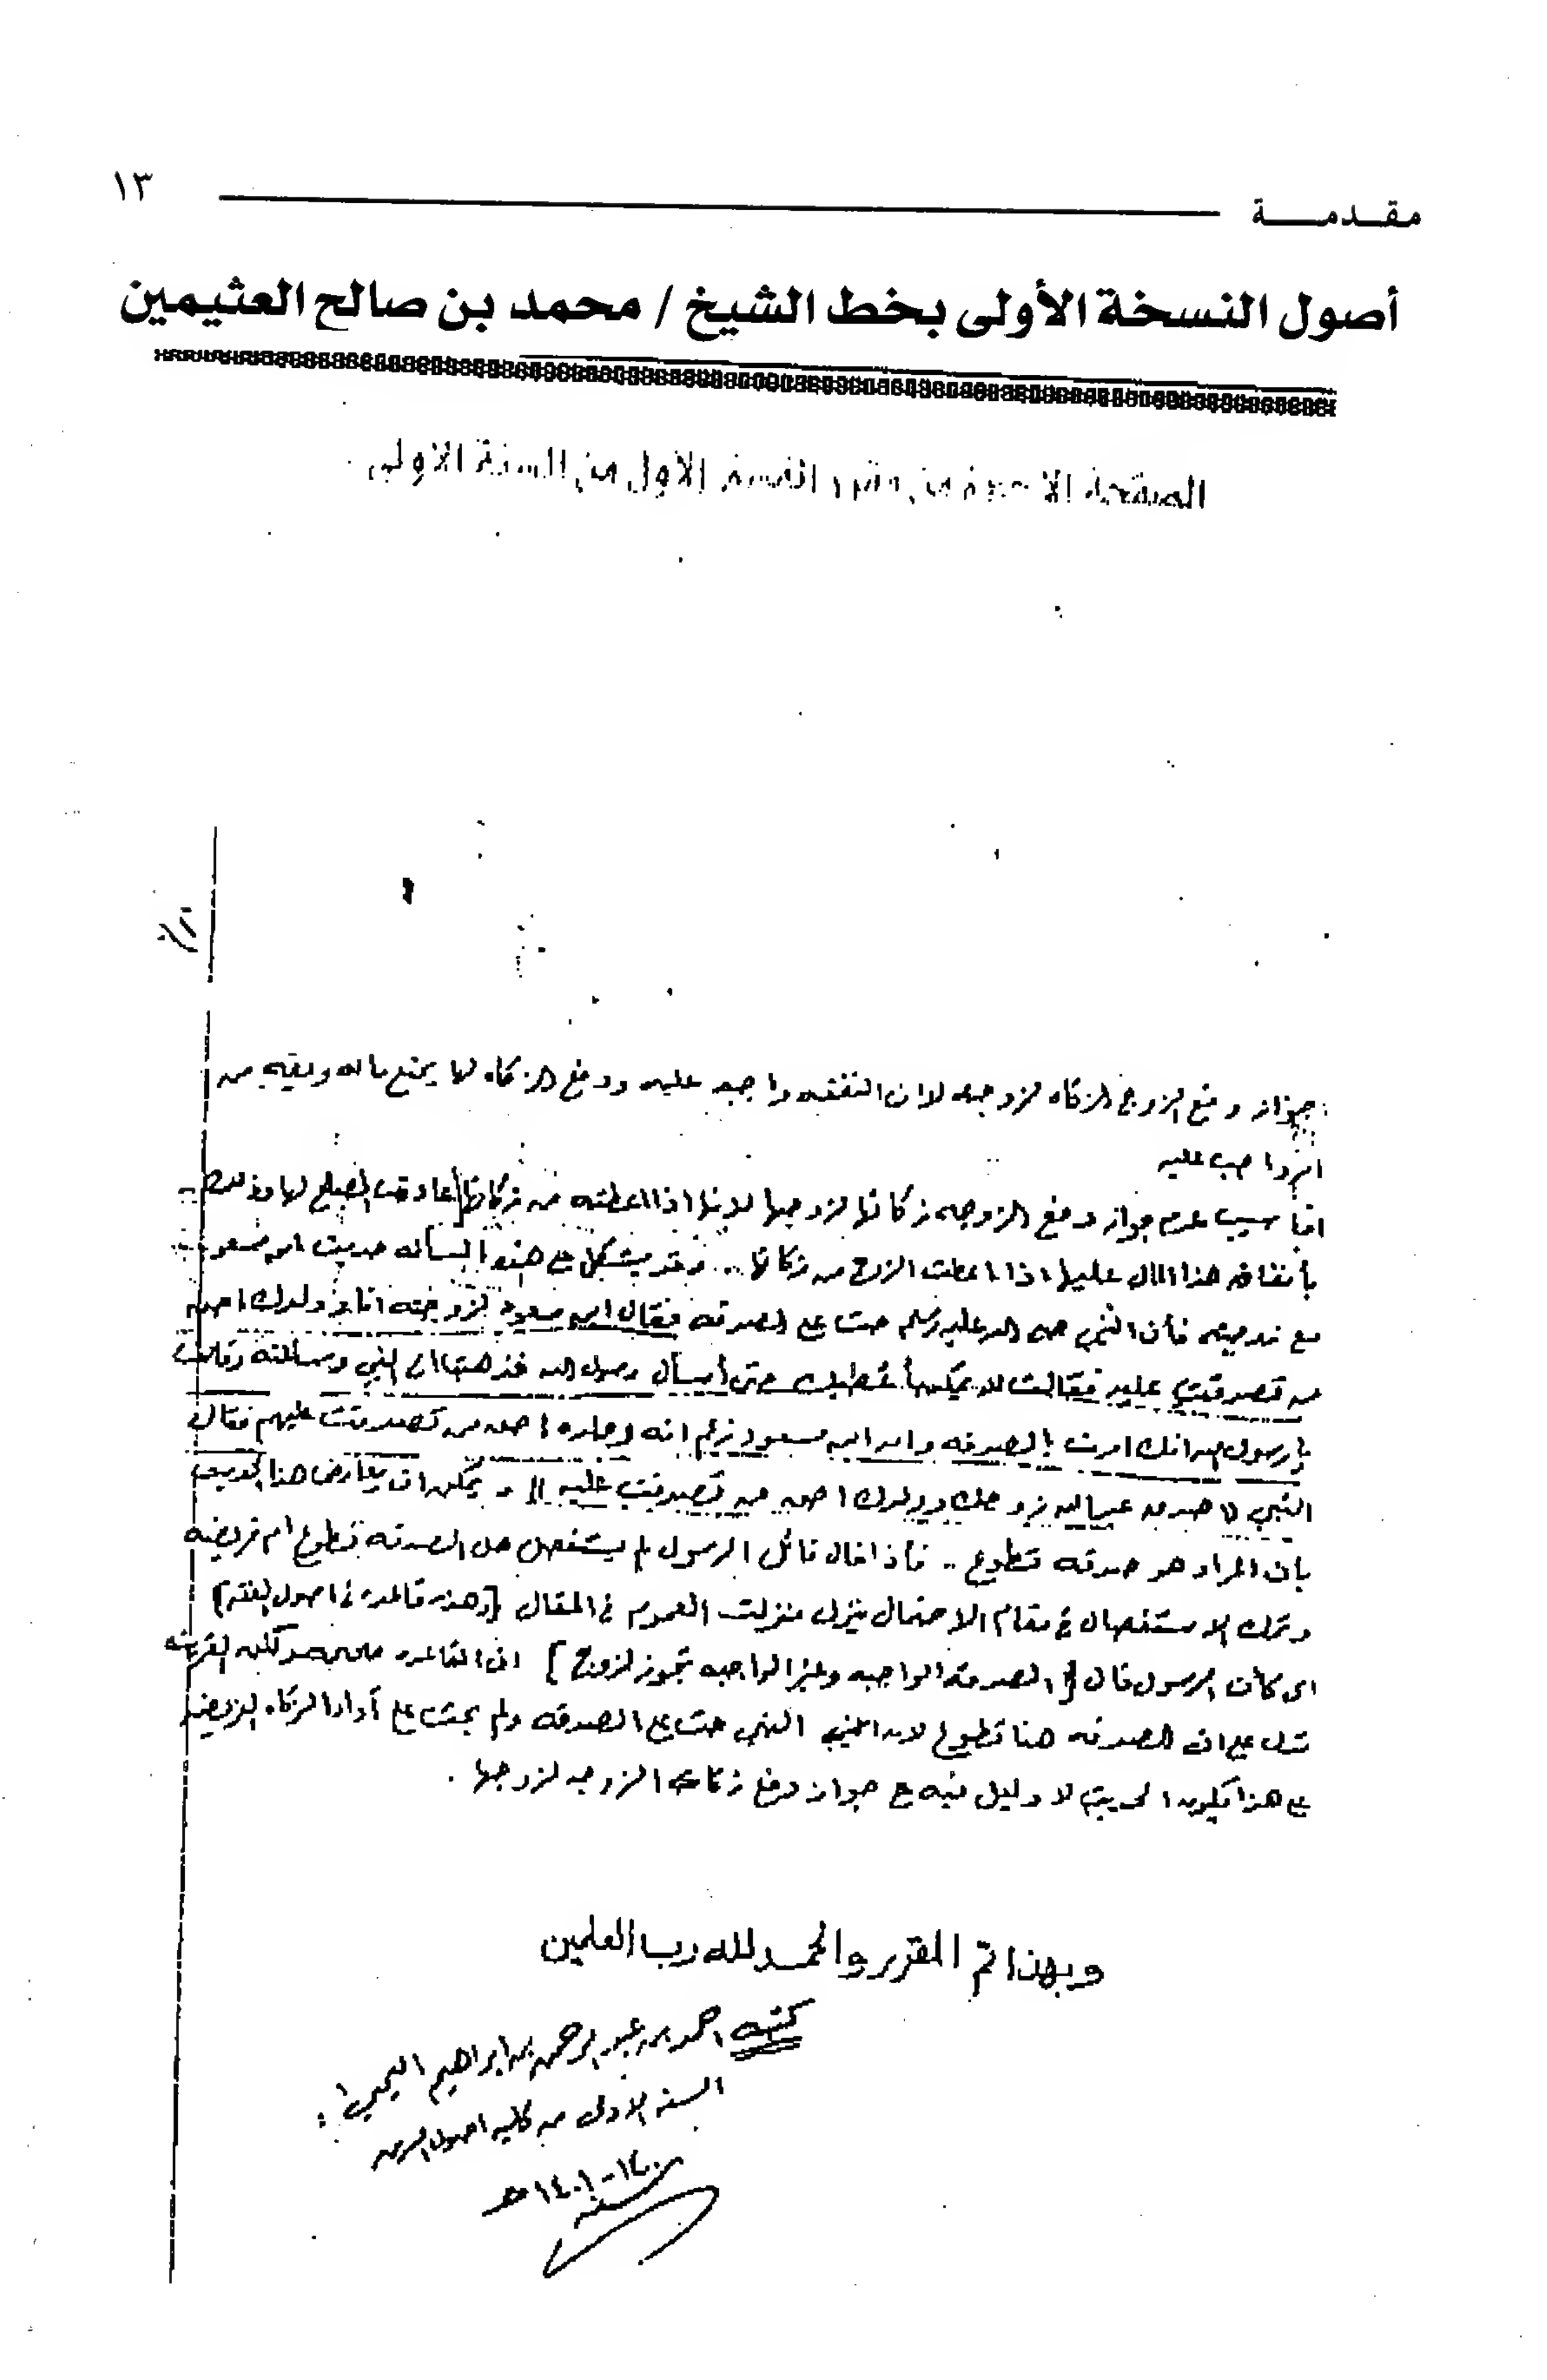 مقدمة ١٣
أصول النسخة الأولى بخط الشيخ / محمد بن صالح العثيمين
الصفحة الأخيرة من مقرر القسم الأول من السنة الأولى
جواز دفع الزوج الزكاه لزوجته لان النفقه واجبه عليه ودفع الزكاه لها يمنع ماله ويقيه من
امر واجب عليه
اما سبب عدم جواز دفع الزوجه زكاتها لزوجها لانها اذا اعطته من زكاتها عاد المبلغ لها وذلك
بأنفاقه هذا المال عليها اذا اعطت الزوج من زكاتها .. وقد يشكل على هذه المسأله حديث ابن مسعود
مع زوجته فأن النبي صلى الله عليه وسلم حث على الصدقه فقال ابن مسعود لزوجته انا وولدك احق
من تصدقت عليه فقالت لا يمكن أعطيك حتى أسأل رسول الله فذهبت الى النبي وسألته وقالت
يا رسول الله انك امرت بالصدقه وان ابن مسعود زعم انه وولده احق من تصدقت عليهم فقال
النبي (( صدق عبدالله زوجك وولدك احق من تصدقت عليه )) و يمكن ان يعارض هذا الحديث
بان المراد هو صدقه تطوع .. فأذا قال قائل الرسول لم يستفصل هل الصدقه تطوع أم فريضه
وترك الاستفصال في مقام الاحتمال ينزل منزلت العموم في المقال [وهذه قاعده في اصول الفقه]
اى كأن الرسول قال [الصدقه الواجبه وغير الواجبه تجوز للزوج] ان القاعده لكن القرينه
تدل على ان الصدقه هنا تطوع لان النبي حث على الصدقه ولم يحث على أداء الزكاه الفريضه
على هذا يكون الحديث لا دليل فيه على جواز دفع زكاة الزوجه لزوجها .
وبهذا تم المقرر والحمد لله رب العلمين
كتبه احمد بن عبد الرحمن بن ابراهيم
السنه الاولى من كليه اصول الدين
سنة ١٤٠٠-١٤٠١ هـ